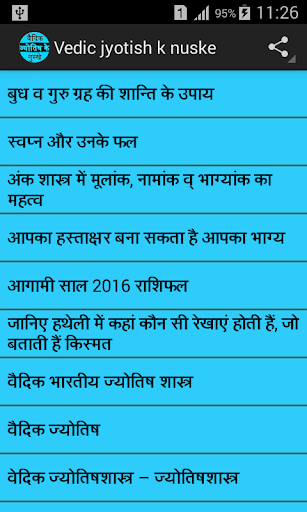 1 95% 11:26
वैदिक
ज्योतिष के
नुस्खे
Vedic jyotish k nuske
बुध व गुरु ग्रह की शान्ति के उपाय
स्वप्न और उनके फल
अंक शास्त्र में मूलांक, नामांक व् भाग्यांक का
महत्व
आपका हस्ताक्षर बना सकता है आपका भाग्य
आगामी साल 2016 राशिफल
जानिए हथेली में कहां कौन सी रेखाएं होती हैं, जो
बताती हैं किस्मत
वैदिक भारतीय ज्योतिष शास्त्र
वैदिक ज्योतिष
वेदिक ज्योतिषशास्त्र – ज्योतिषशास्त्र